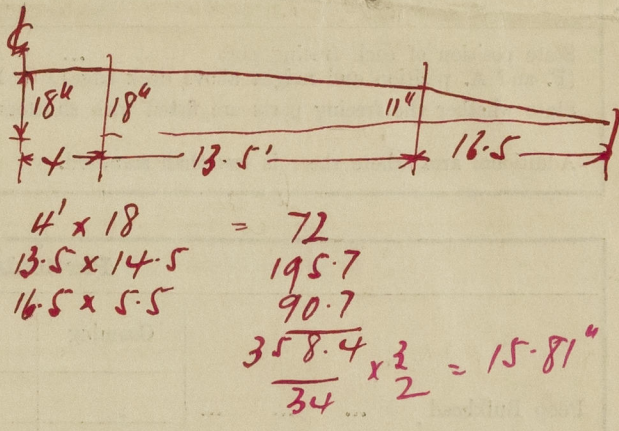 ℄
18" 18" 11"
4 13.5' 16.5
4' x 18 = 72
13.5 x 14.5 195.7
16.5 x 5.5 90.7
358.4
34
x 3
2
= 15.81"